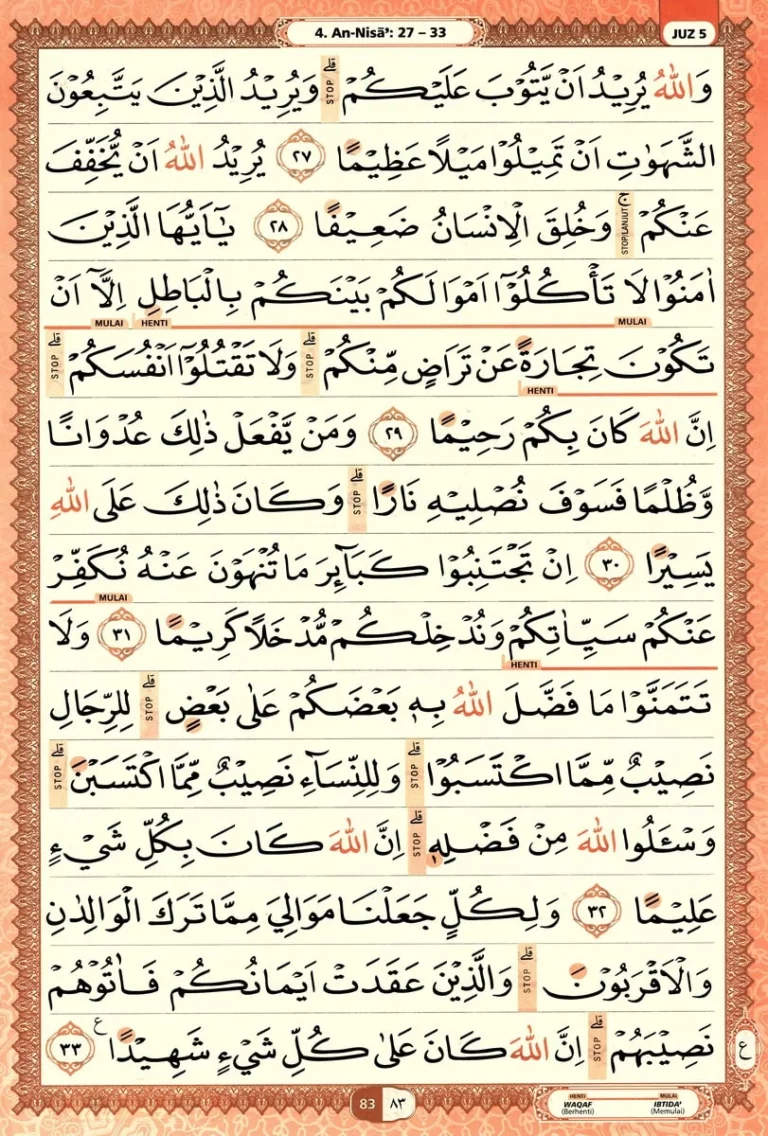 4. An-Nisā': 27 – 33
JUZ 5
وَاللّٰهُ يُرِيْدُ اَنْ يَّتُوْبَ عَلَيْكُمْ ۗ STOP وَيُرِيْدُ الَّذِيْنَ يَتَّبِعُوْنَ
الشَّهَوٰتِ اَنْ تَمِيْلُوْا مَيْلًا عَظِيْمًا ٢٧ يُرِيْدُ اللّٰهُ اَنْ يُّخَفِّفَ
عَنْكُمْ ۚ STOP/LANJUT وَخُلِقَ الْاِنْسَانُ ضَعِيْفًا ٢٨ يٰٓاَيُّهَا الَّذِيْنَ
اٰمَنُوْا لَا تَأْكُلُوْٓا اَمْوَالَكُمْ بَيْنَكُمْ بِالْبَاطِلِ اِلَّآ اَنْ
MULAI HENTI MULAI
تَكُوْنَ تِجَارَةً عَنْ تَرَاضٍ مِّنْكُمْ ۗ STOP وَلَا تَقْتُلُوْٓا اَنْفُسَكُمْ ۗ STOP
HENTI
اِنَّ اللّٰهَ كَانَ بِكُمْ رَحِيْمًا ٢٩ وَمَنْ يَّفْعَلْ ذٰلِكَ عُدْوَانًا
وَّظُلْمًا فَسَوْفَ نُصْلِيْهِ نَارًا ۗ STOP وَكَانَ ذٰلِكَ عَلَى اللّٰهِ
يَسِيْرًا ٣٠ اِنْ تَجْتَنِبُوْا كَبَاۤىِٕرَ مَا تُنْهَوْنَ عَنْهُ نُكَفِّرْ
MULAI
عَنْكُمْ سَيِّاٰتِكُمْ وَنُدْخِلْكُمْ مُّدْخَلًا كَرِيْمًا ٣١ وَلَا
HENTI
تَتَمَنَّوْا مَا فَضَّلَ اللّٰهُ بِهٖ بَعْضَكُمْ عَلٰى بَعْضٍ ۗ STOP لِلرِّجَالِ
نَصِيْبٌ مِّمَّا اكْتَسَبُوْا ۗ STOP وَلِلنِّسَاۤءِ نَصِيْبٌ مِّمَّا اكْتَسَبْنَ ۗ STOP
وَسْـَٔلُوا اللّٰهَ مِنْ فَضْلِهٖ ۗ STOP اِنَّ اللّٰهَ كَانَ بِكُلِّ شَيْءٍ
عَلِيْمًا ٣٢ وَلِكُلٍّ جَعَلْنَا مَوَالِيَ مِمَّا تَرَكَ الْوَالِدٰنِ
وَالْاَقْرَبُوْنَ ۗ STOP وَالَّذِيْنَ عَقَدَتْ اَيْمَانُكُمْ فَاٰتُوْهُمْ
نَصِيْبَهُمْ ۗ STOP اِنَّ اللّٰهَ كَانَ عَلٰى كُلِّ شَيْءٍ شَهِيْدًا ع ٣٣
ع
83 ٨٣
HENTI MULAI
WAQAF IBTIDA'
(Berhenti) (Memulai)